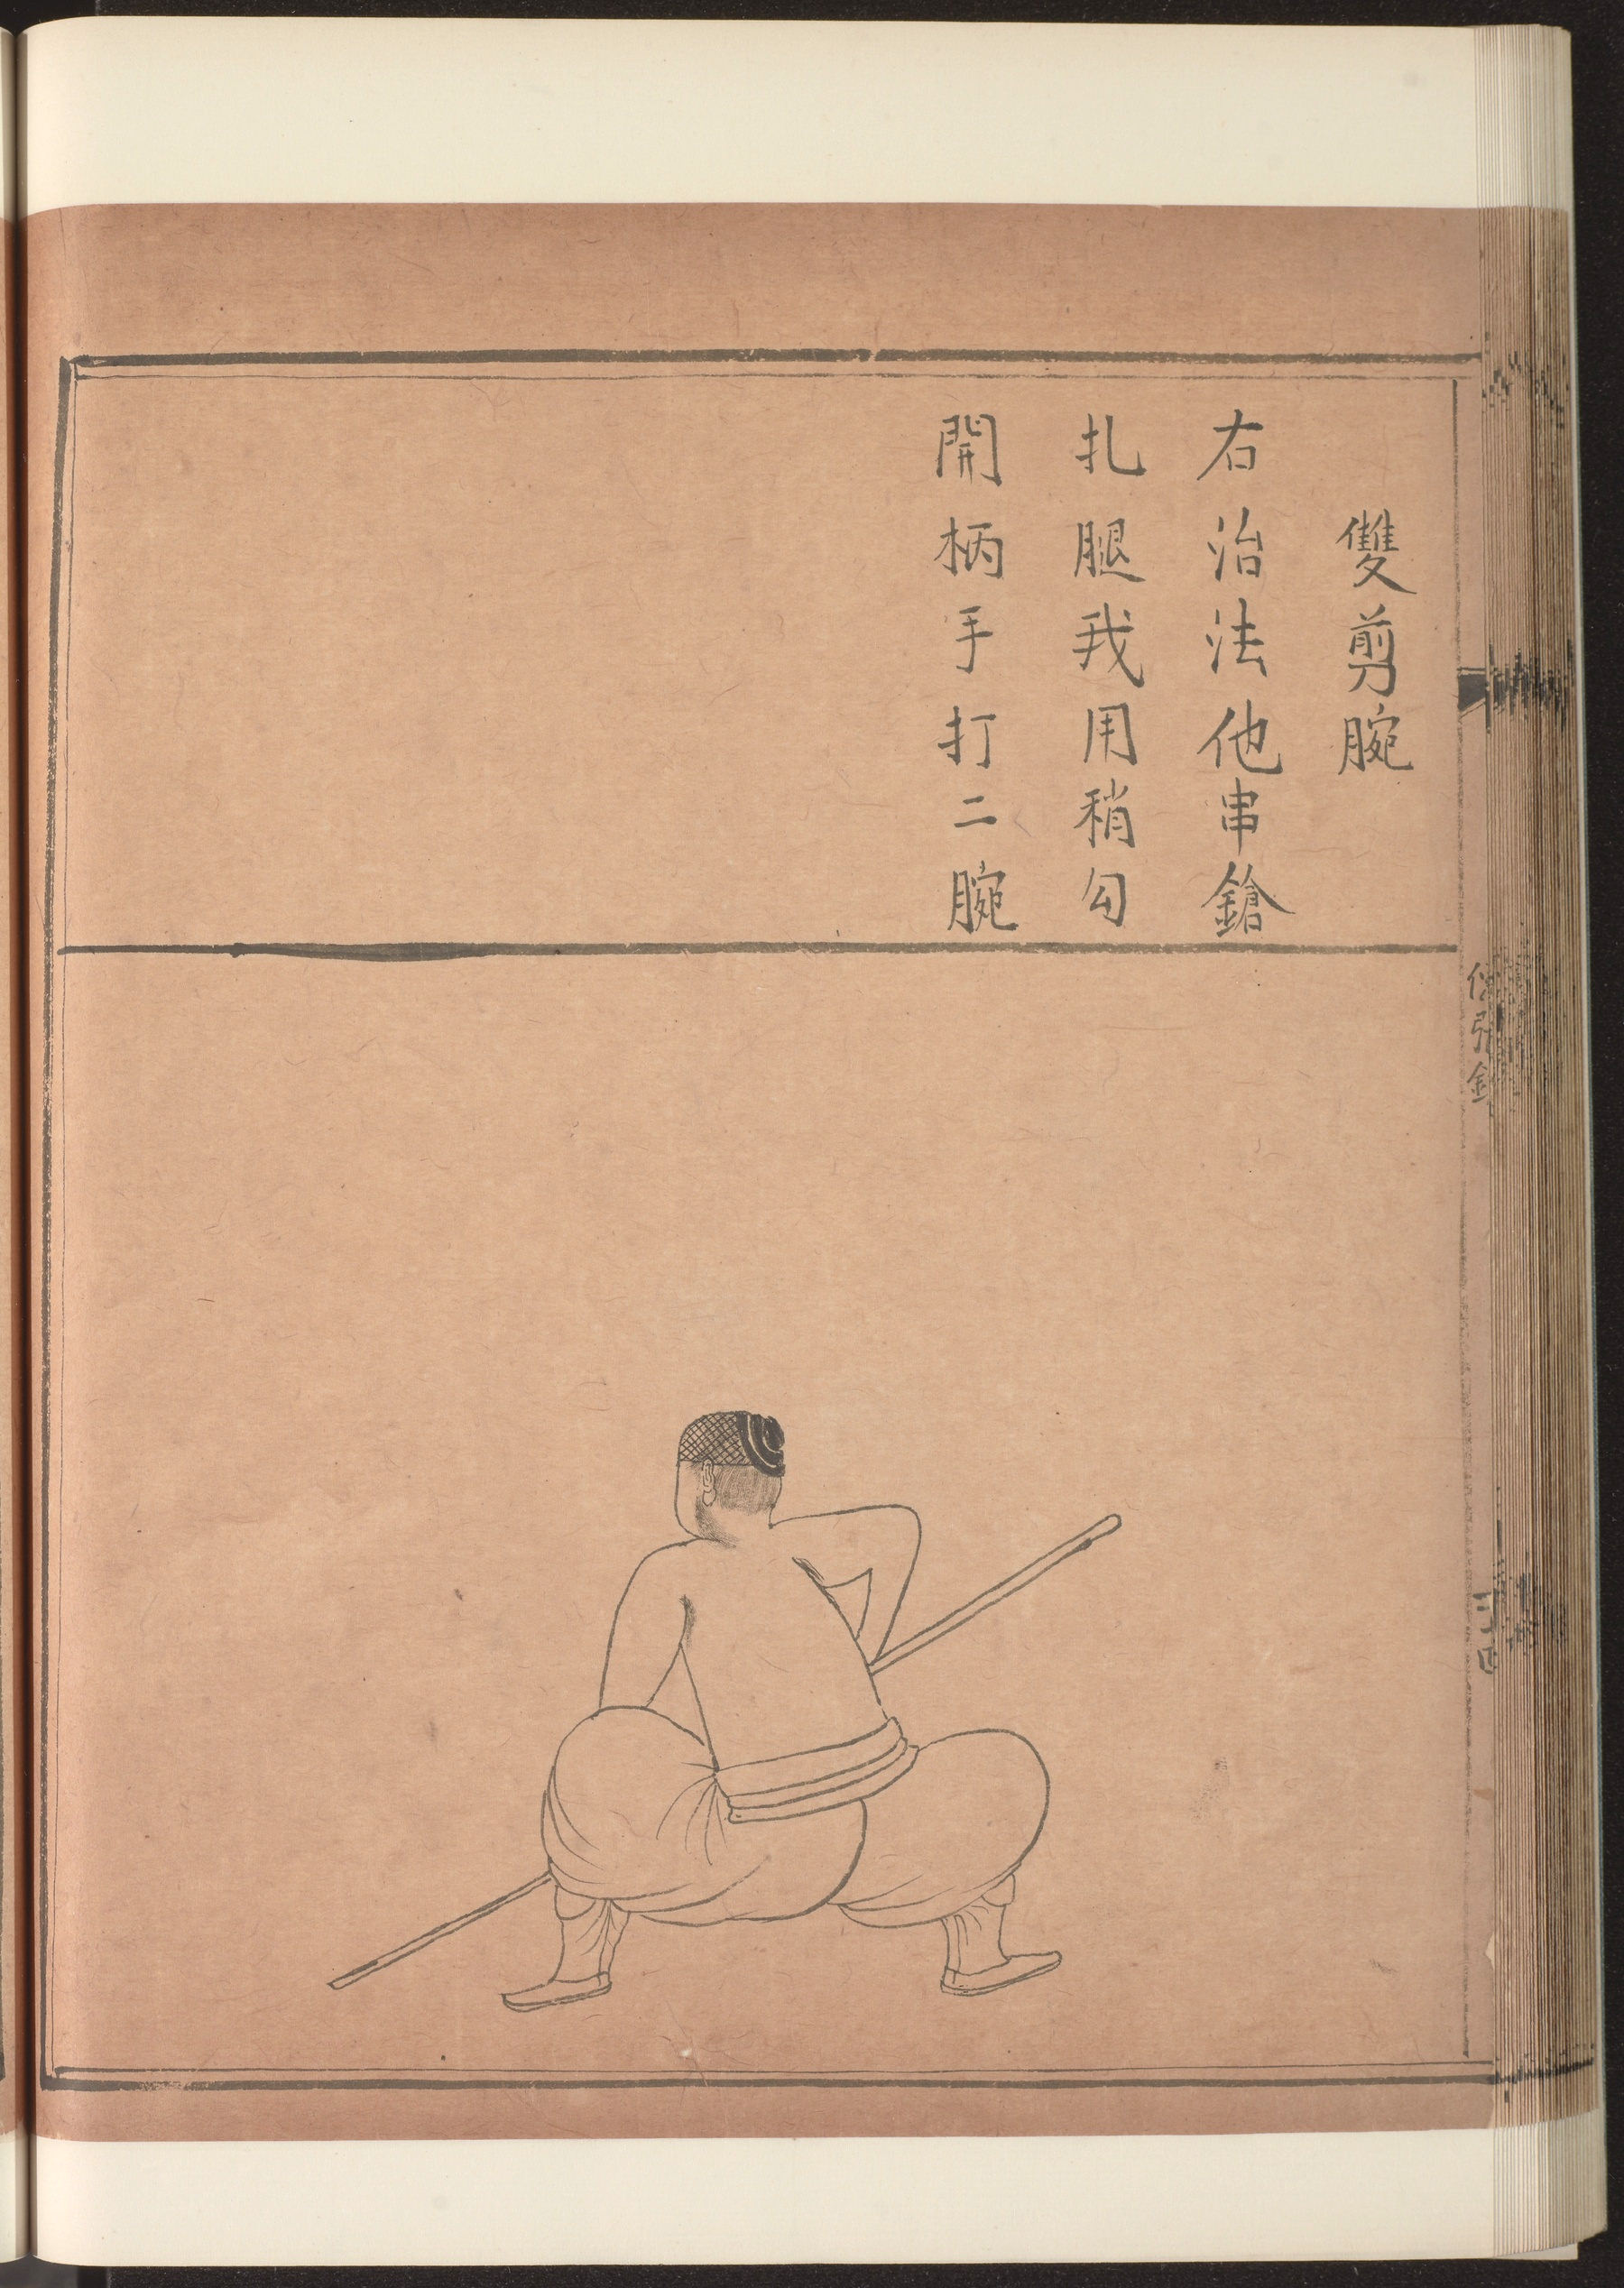 雙剪腕
右治法他串鎗
扎腿我用稍勾
開柄手打二腕